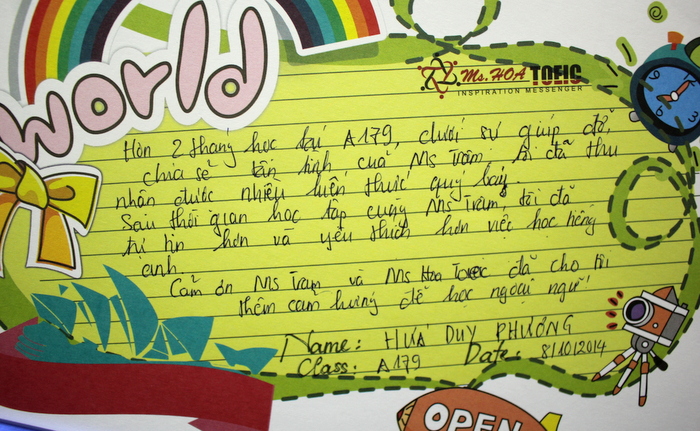 world
Ms. HOA TOEIC
INSPIRATION MESSENGER
Hơn 2 tháng học tại A179, dưới sự giúp đỡ,
chia sẻ tận tình của Ms Trâm, tôi đã thu
nhận được nhiều kiến thức quý báu
Sau thời gian học tập cùng Ms Trâm, tôi đã
tự tin hơn và yêu thích hơn việc học tiếng
anh
Cảm ơn Ms Trâm và Ms Hoa Toeic đã cho tôi
thêm cảm hứng để học ngoại ngữ!
Name: HỨA DUY PHƯƠNG
Class: A179 Date: 8/10/2014
OPEN